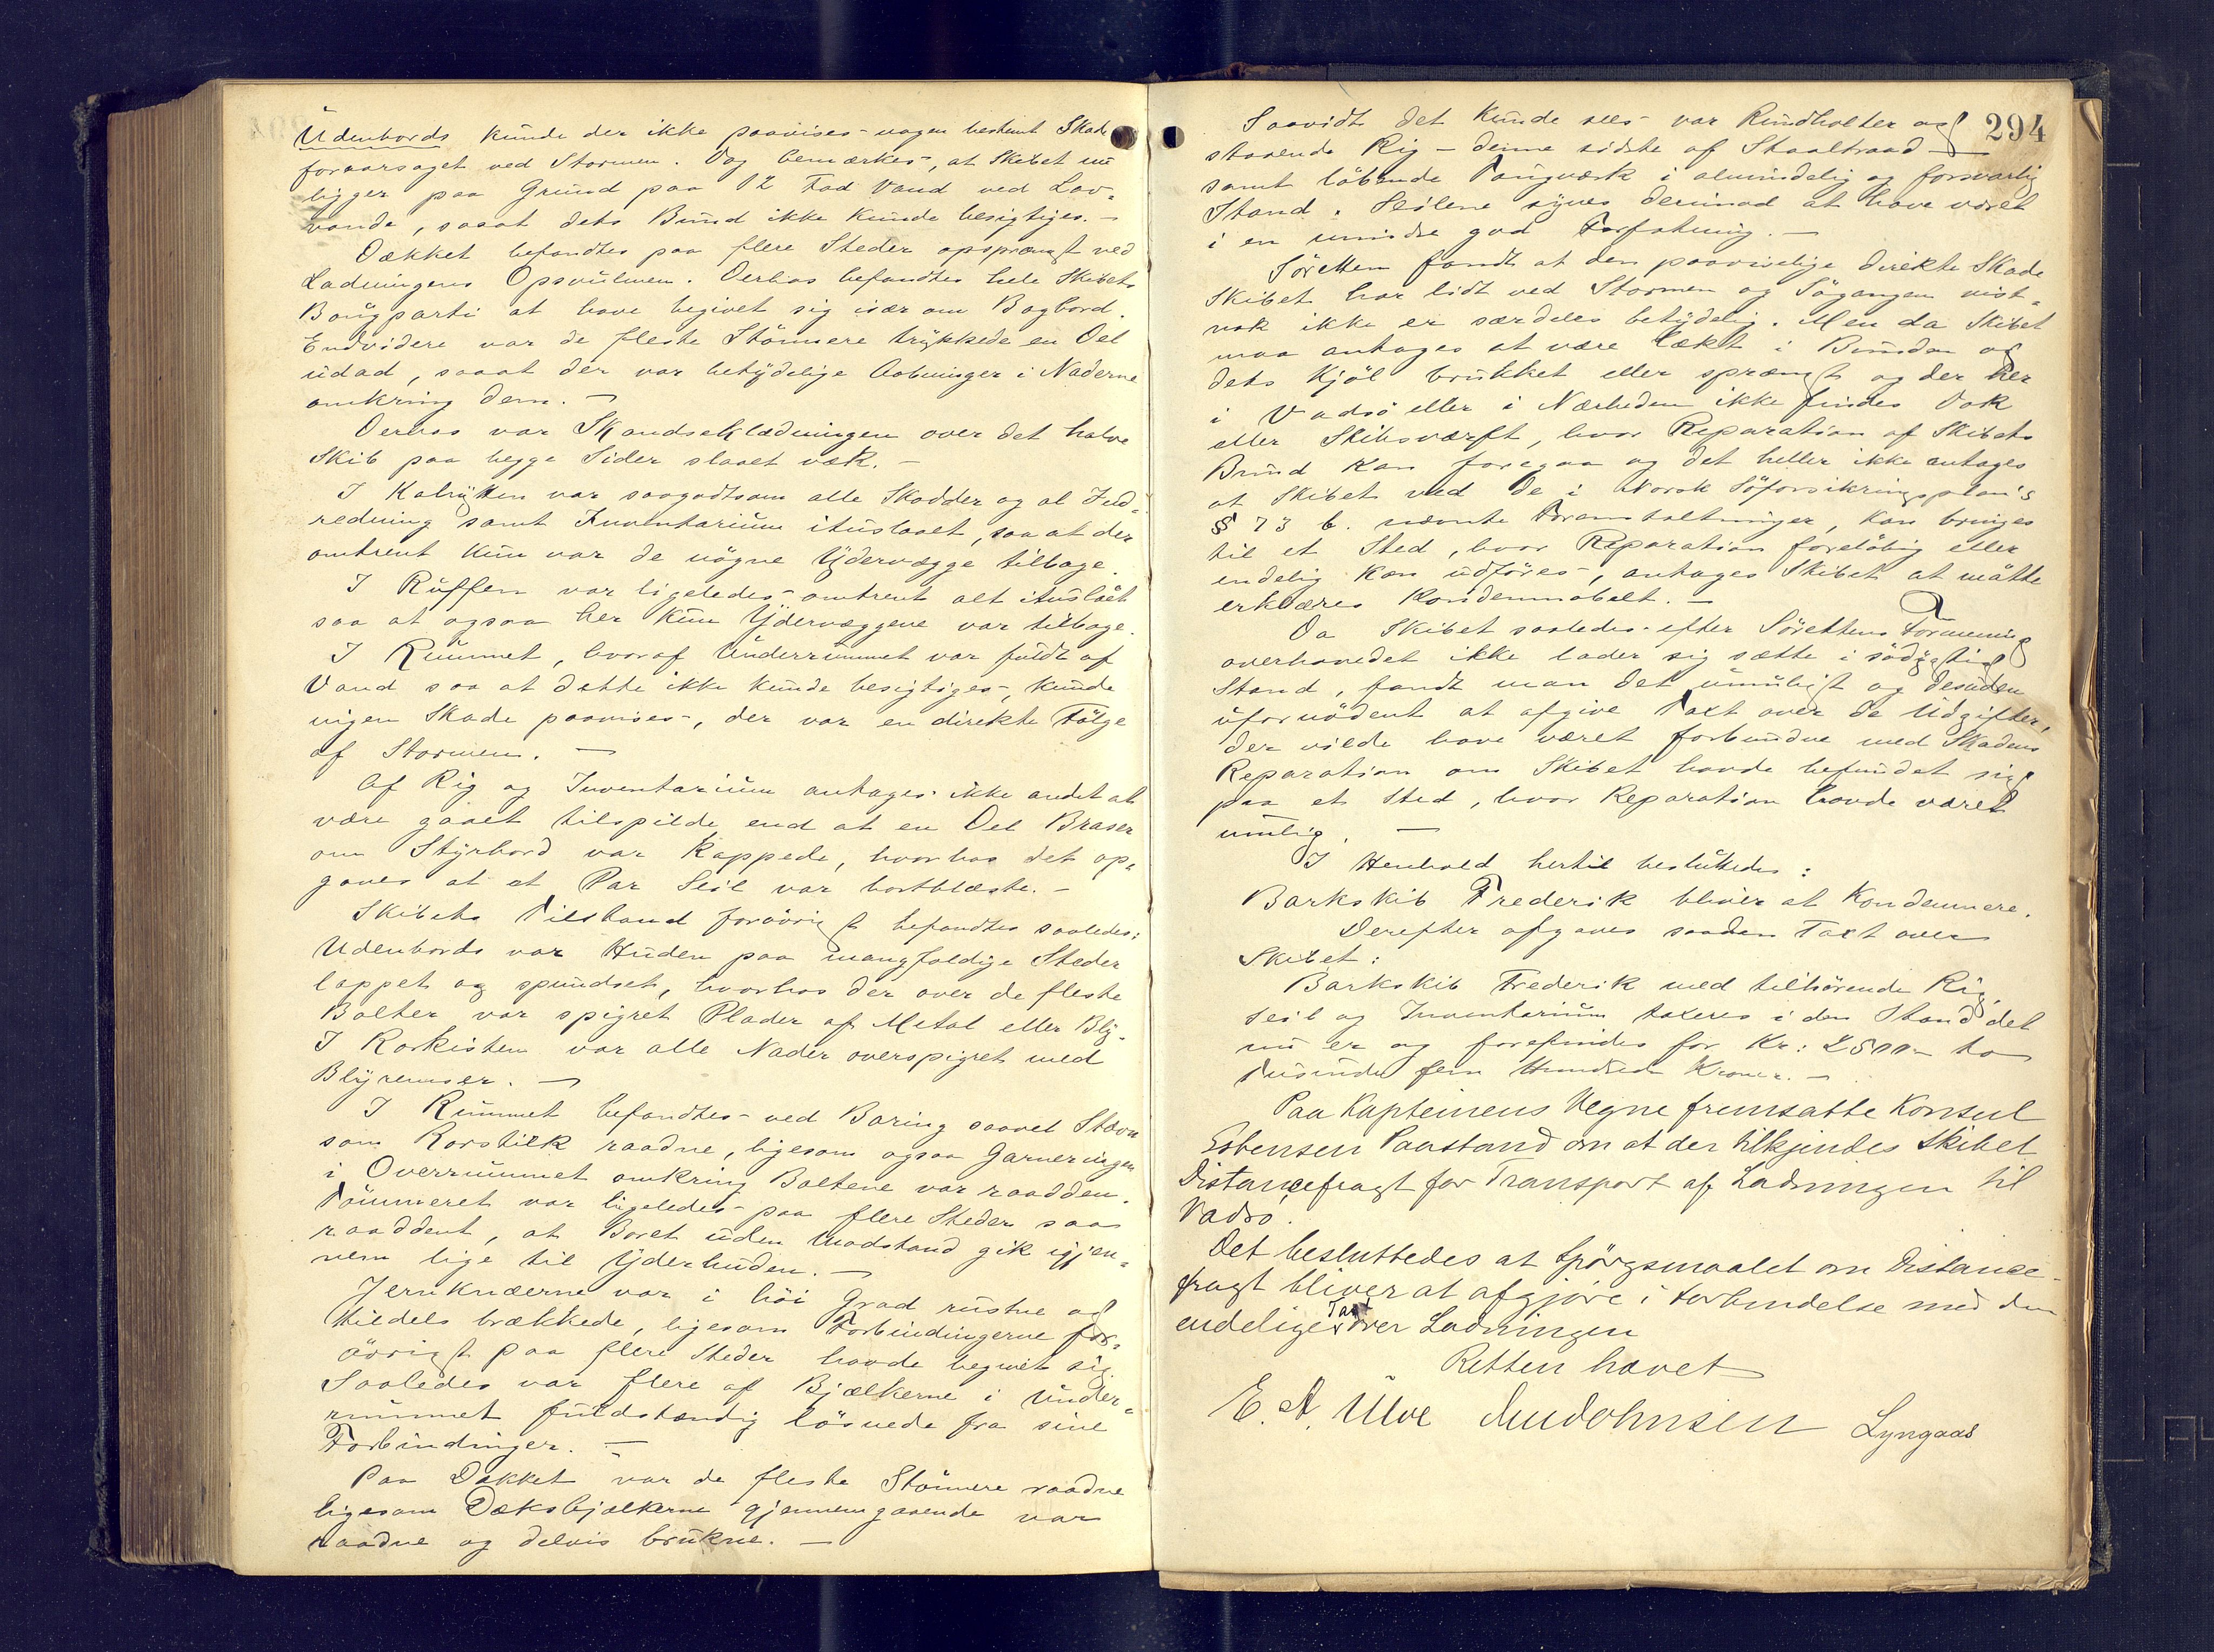 Udenbords kunde der ikke paavises nogen bestemt Skade
foraarsaget ved Stormen. Dog bemærkes, at Skibet nu
ligger paa Grund paa 12 Fod Vand ved Lav-
vande, saaat dets Bund ikke kunde besigtiges. -
Dækket befandtes paa flere Steder opsprængt ved
Ladningens Opsvulmen. Derhos befandtes hele Skibets
Bougparti at have begivet sig især om Bagbord.
Endvidere var de fleste Stönnere trykkede en Del
udad, saaat der var betydelige Aabninger i Naderne
omkring dem. -
Derhos var Skandseklædningen over det halve
Skib paa begge Sider slaaet væk. -
I Kahytten var saagodtsom alle Skodder og al Ind-
redning samt Inventarium ituslaaet, saa at der
omtrent kun var de nögne Ydervægge tilbage.
I Ruffen var ligeledes omtrent alt ituslaaet
saa at ogsaa her kun Ydervæggene var tilbage.
I Rummet, hvoraf Underrummet var fuldt af
Vand saa at dette ikke kunde besigtiges, kunde
ingen Skade paavises, der var en direkte Fölge
af Stormen. -
Af Rig og Inventarium antages ikke andet at
være gaaet tilspilde end at en Del Braser
om Styrbord var kappede, hvorhos det op-
gaves at et Par Seil var bortblæste. -
Skibets Tilstand forövrigt befandtes saaledes:
Udenbords var Huden paa mangfoldige Steder
lappet og spundset, hvorhos der over de fleste
Bolter var spigret Plader af Metal eller Bly.
I Rorkisten var alle Nader overspigret med
Blyremser. -
I Rummet befandtes ved Boring saavel Stævn
som Rorstilk raadne, ligesom ogsaa Garneringen
i Overrummet omkring Boltene var raadden.
Tömmeret var ligeledes paa flere Steder saa
raaddent, at Boret uden Modstand gik igjen-
nem lige til Yderhuden. -
Jernknæerne var i höi Grad rustne og
tildels brækkede, ligesom Forbindingerne for-
övrigt paa flere Steder havde begivet sig.
Saaledes var flere af Bjælkerne i Under-
rummet fuldstændig lösnede fra sine
Forbindinger. -
Paa Dækket var de fleste Stönnere raadne
ligesom Dæksbjælkerne gjennemgaaende var
raadne og delvis brukne. -
294
Saavidt det kunde sees var Rundholter og
staaende Rig - denne sidste af Staaltraad -
samt löbende Taugværk i almindelig og forsvarlig
Stand. Seilene synes derimod at have været
i en mindre god Forfatning. -
Söretten fandt at den paaviselige direkte Skade
Skibet har lidt ved Stormen og Sögangen vist-
nok ikke er særdeles betydelig. Men da Skibet
maa antages at være læk i Bunden og
dets Kjöl brukket eller sprængt og der her
i Vadsö eller i Nærheden ikke findes Dok
eller Skibsværft, hvor Reparation af Skibets
Bund kan foregaa og det heller ikke antages
at Skibet ved de i Norsk Söforsikringsplan's
§ 73 b. nævnte Foranstaltninger, kan bringes
til et Sted, hvor Reparation forelöbig eller
endelig kan udföres, antages Skibet at måtte
erklæres kondemnabelt. -
Da Skibet saaledes efter Sörettens Formening
overhovedet ikke lader sig sætte i södygtig
Stand, fandt man det umuligt og desuden
ufornödent at afgive Taxt over de Udgifter,
der vilde have været forbundne med Skadens
Reparation om Skibet havde befundet sig
paa et Sted, hvor Reparation havde været
mulig. -
I Henhold hertil besluttedes:
Barkskib Frederik bliver at kondemnere.
Derefter afgaves saadan Taxt over
Skibet:
Barkskib Frederik med tilhörende Rig,
Seil og Inventarium taxeres i den Stand det
nu er og forefindes for Kr: 2500 - to
Tusinde fem Hundrede Kroner. -
Paa Kapteinens Vegne fremsatte Konsul
Esbensen Paastand om at der tilkjendes Skibet
Distancefragt for Transport af Ladningen til
Vadsö.
Det besluttedes at Spörgsmaalet om Distance-
fragt bliver at afgjöre i Forbindelse med den
endelige Taxt over Ladningen
Retten hævet
E. A. Ulve Lyngaas